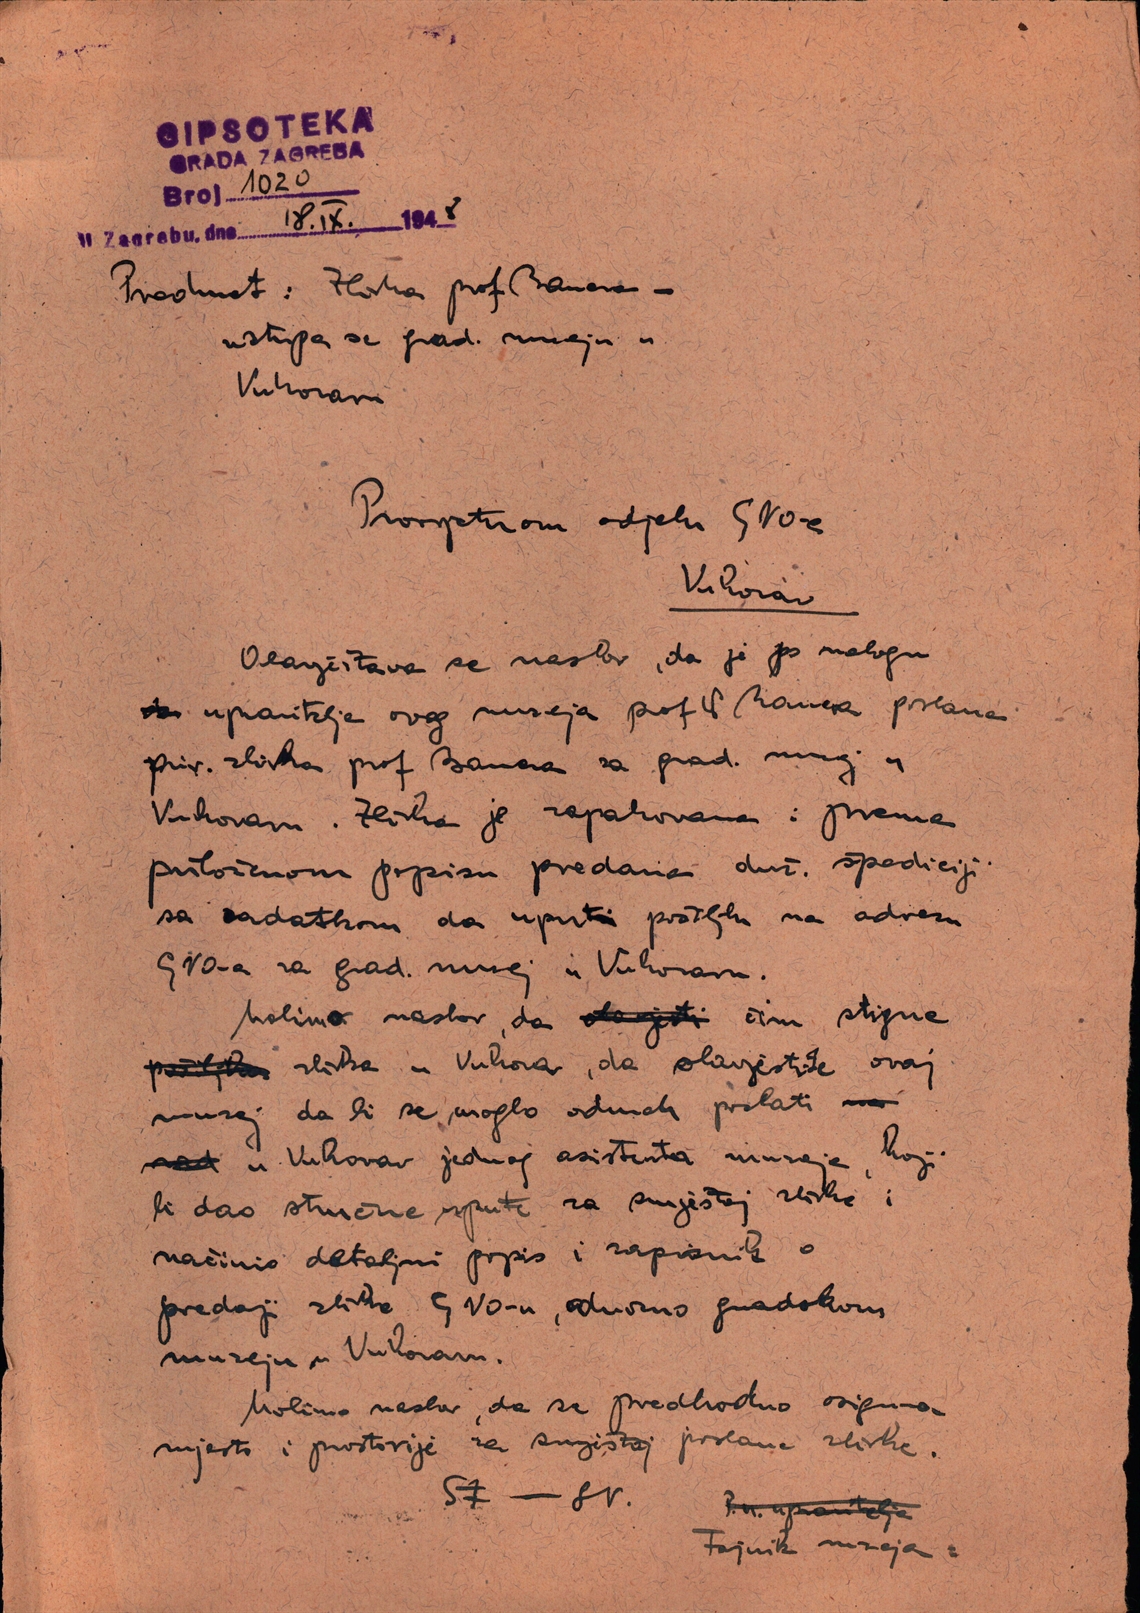 GIPSOTEKA
GRADA ZAGREBA
Broj 1020
U Zagrebu, dne 18.IX. 1948
Predmet : Zbirka prof Bauera –
ustupa se grad. muzeju u
Vukovaru
Prosvjetnom odjelu GNO-a
Vukovar
Obavještava se naslov, da je po nalogu
upravitelja ovog muzeja prof Bauera poslana
priv. zbirka prof Bauera za grad. muzej u
Vukovaru. Zbirka je zapakovana i prema
priloženom popisu predana duž. špediciji
sa zadatkom da uputi pošiljku na adresu
GNO-a za grad. muzej u Vukovaru.
Molimo naslov, da obavjesti čim stigne
pošiljka zbirka u Vukovar, da obavjestite ovaj
muzej da bi se moglo odmah poslati na
rad u Vukovar jednog asistenta muzeja, koji
bi dao stručne upute za smještaj zbirke i
načinio detaljni popis i zapisnik o
predaji zbirke GNO-u, odnosno gradskom
muzeju u Vukovaru.
Molimo naslov, da se predhodno osigura
mjesto i prostorije za smještaj poslane zbirke.
SF — SN.
P.u. upravitelja
Tajnik muzeja :